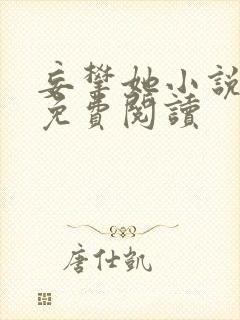 妄攀她小說
免費閱讀
唐仕凱